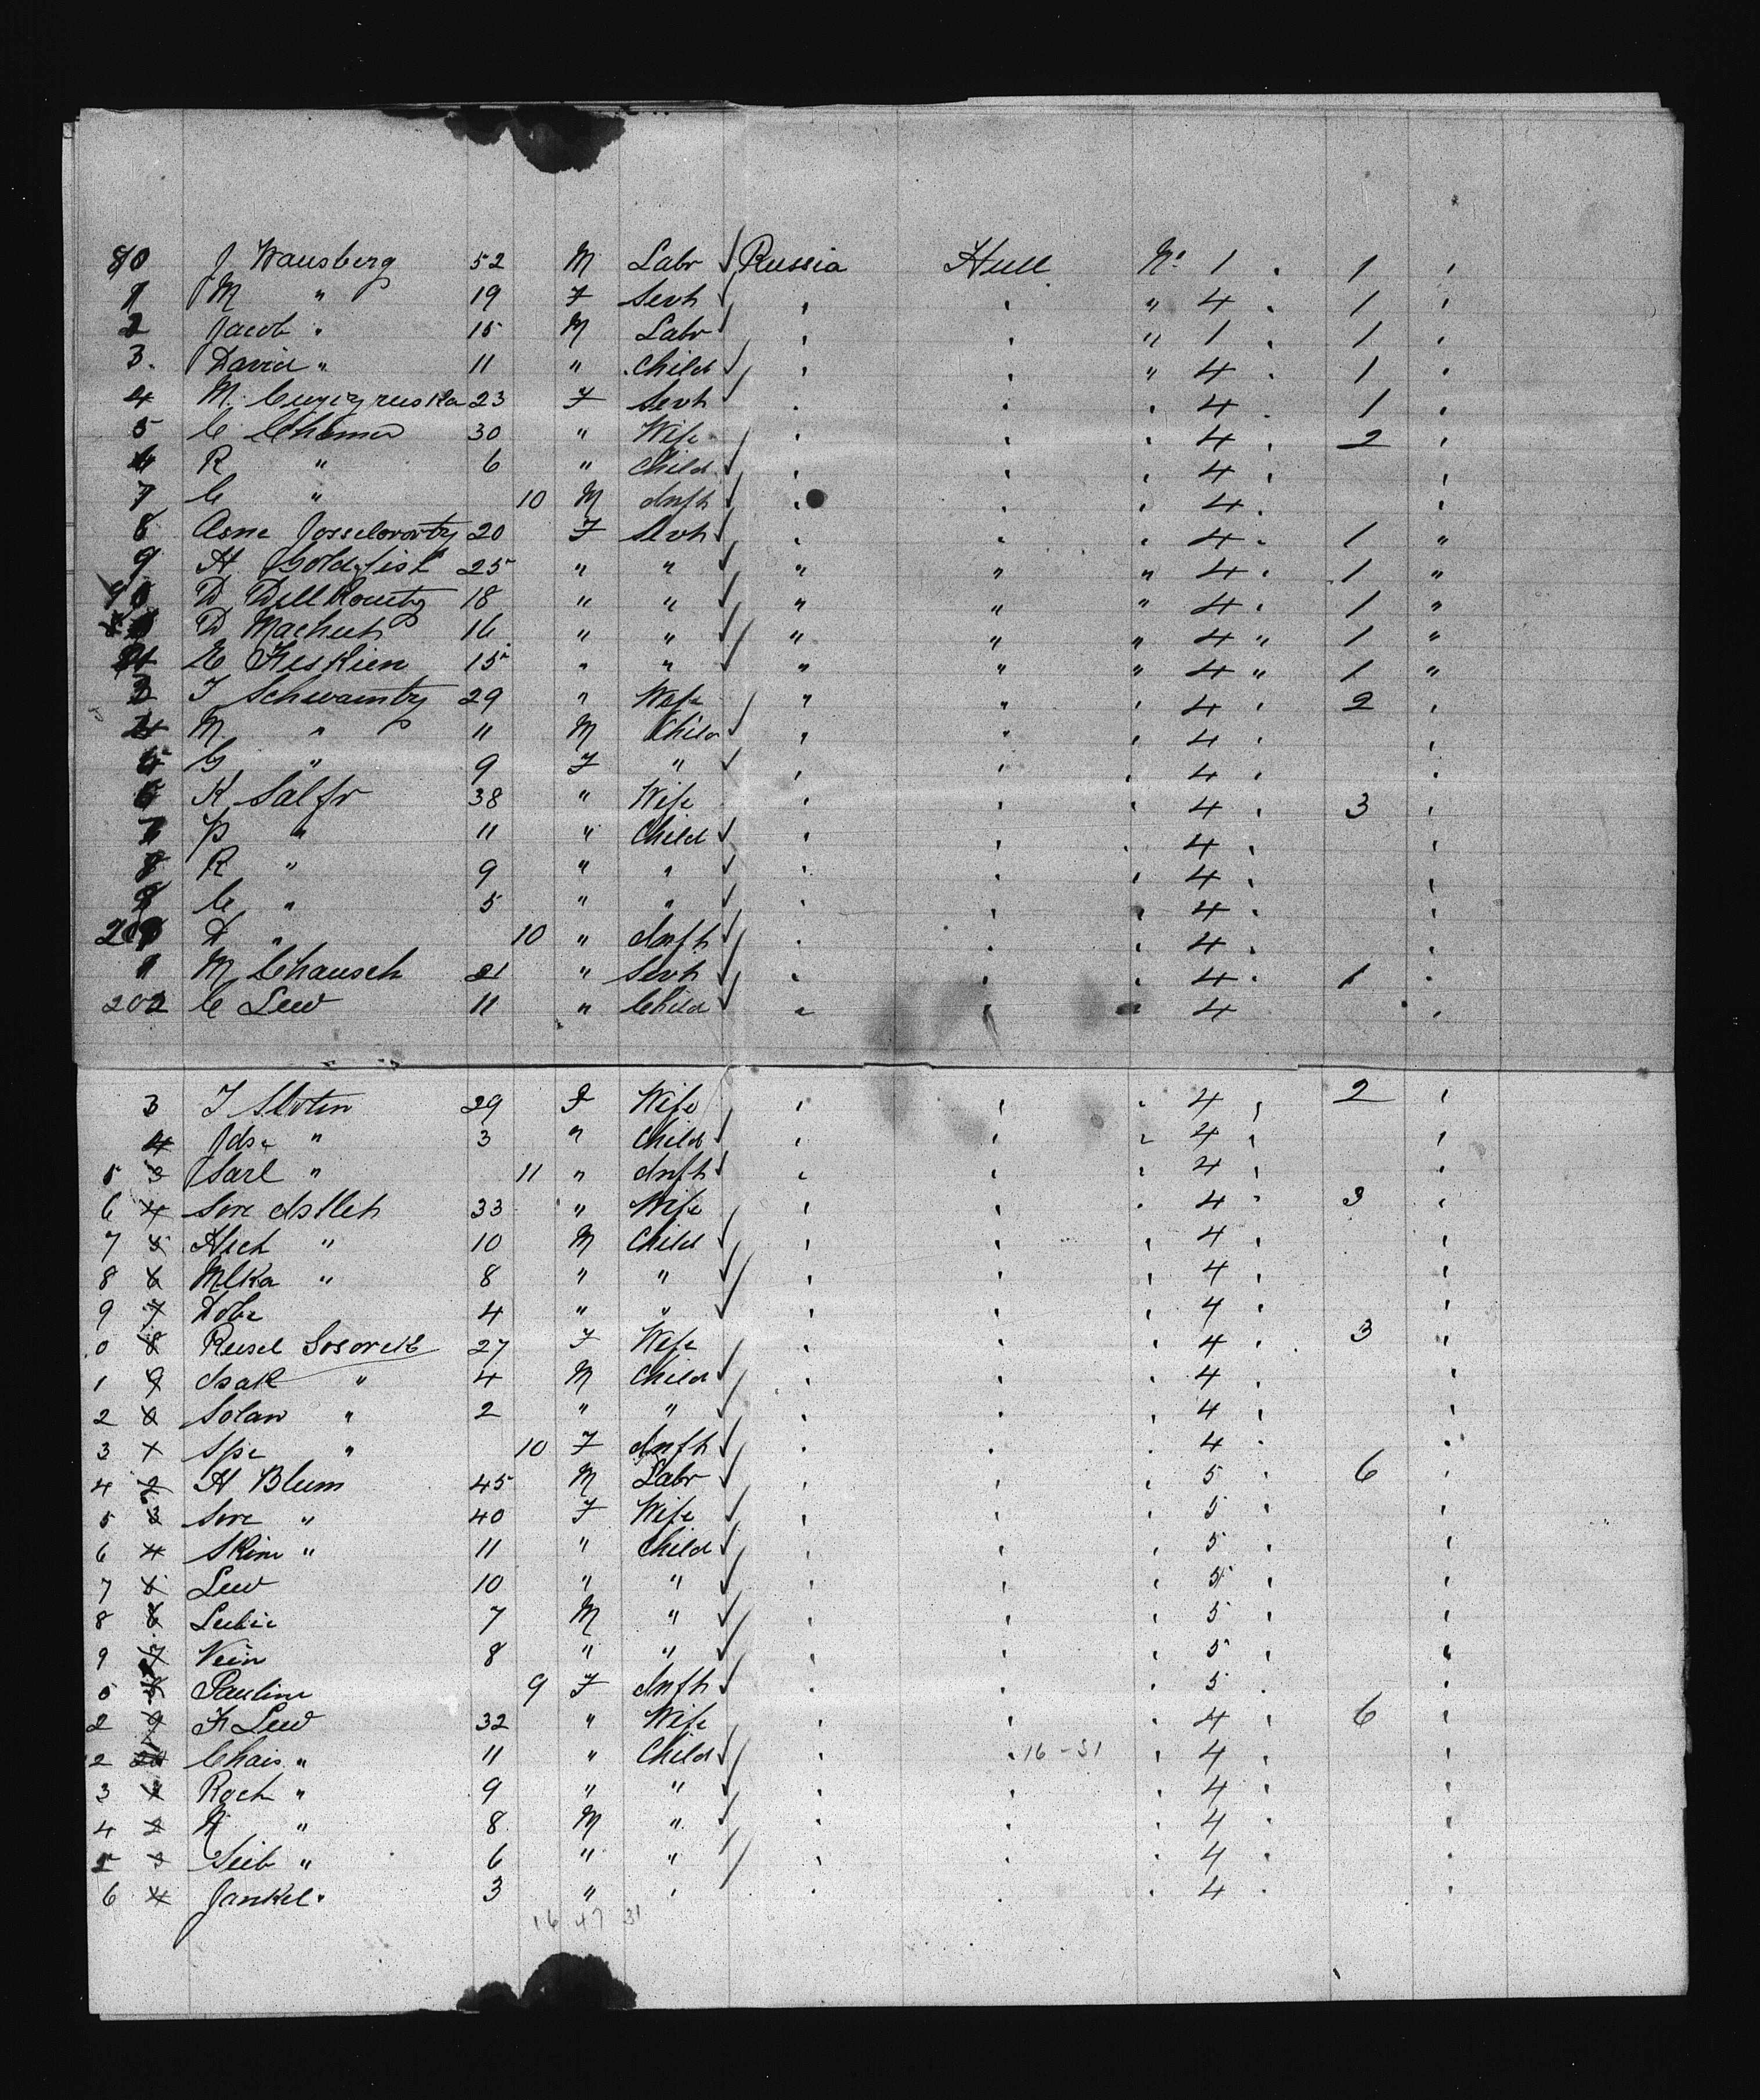 80 J Wausberg 52 M Labr Russia Hull No 1 . 1 .
1 M " 19 F Servt " 4 . 1
2 Jacob " 15 M Labr " 1 . 1
3. David " 11 " Child " 4 . 1
4 M. 23 F Servt 4 . 1
5 C Chamer 30 " Wife 4 . 2
6 R " 6 " Child 4
7 C " 10 M Infh 4
8 Asne 20 F Servt 4 . 1 "
9 H Goldfist 25 " " " " " 4 . 1 "
90 D 18 " " " " " 4 . 1 "
D Machuh 16 " " " " " 4 " 1 "
E Keskien 15 " " " " " 4 " 1 "
3 J 29 " Wife " " 4 . 2
4 M " 11 M Child 4
5 G " 9 F " 4
6 K Salfr 38 " Wife 4 3
7 P " 11 " Child 4
8 R " 9 " " 4
9 C " 5 " " 4
200 D " 10 " Infh 4
1 M Chausch 21 " Servt 4 . 1
202 C Lew 11 " Child 4
3 J Slotin 29 F Wife 4 2
4 " 3 " Child 4
5 3 Sarl " 11 " Infh 4
6 4 Sore 33 " Wife 4 3
7 5 Hsch " 10 M Child 4
8 6 Mlka " 8 " " 4
9 7 Dobe 4 " " 4
0 8 Reisel Sosowik 27 F Wife 4 3
1 9 Isak " 4 M Child 4
2 0 Solaw " 2 " " 4
3 1 Spe " 10 F Infh 4
4 2 H Blum 45 M Labr 5 6
5 3 Sore " 40 F Wife 5
6 4 Skim " 11 " Child 5
7 Lew 10 " " 5
8 Leibie 7 M " 5
9 7 Nein 8 " " 5
0 Pauline 9 F Infh 5
2 9 K Lew 32 " Wife 4 6
2 Chais " 11 " Child 16-31 4
3 Roch " 9 " " 4
4 2 " 8 M " 4
5 3 Seib " 6 " " 4
6 4 Jankel " 3 " " 4
16 47 31